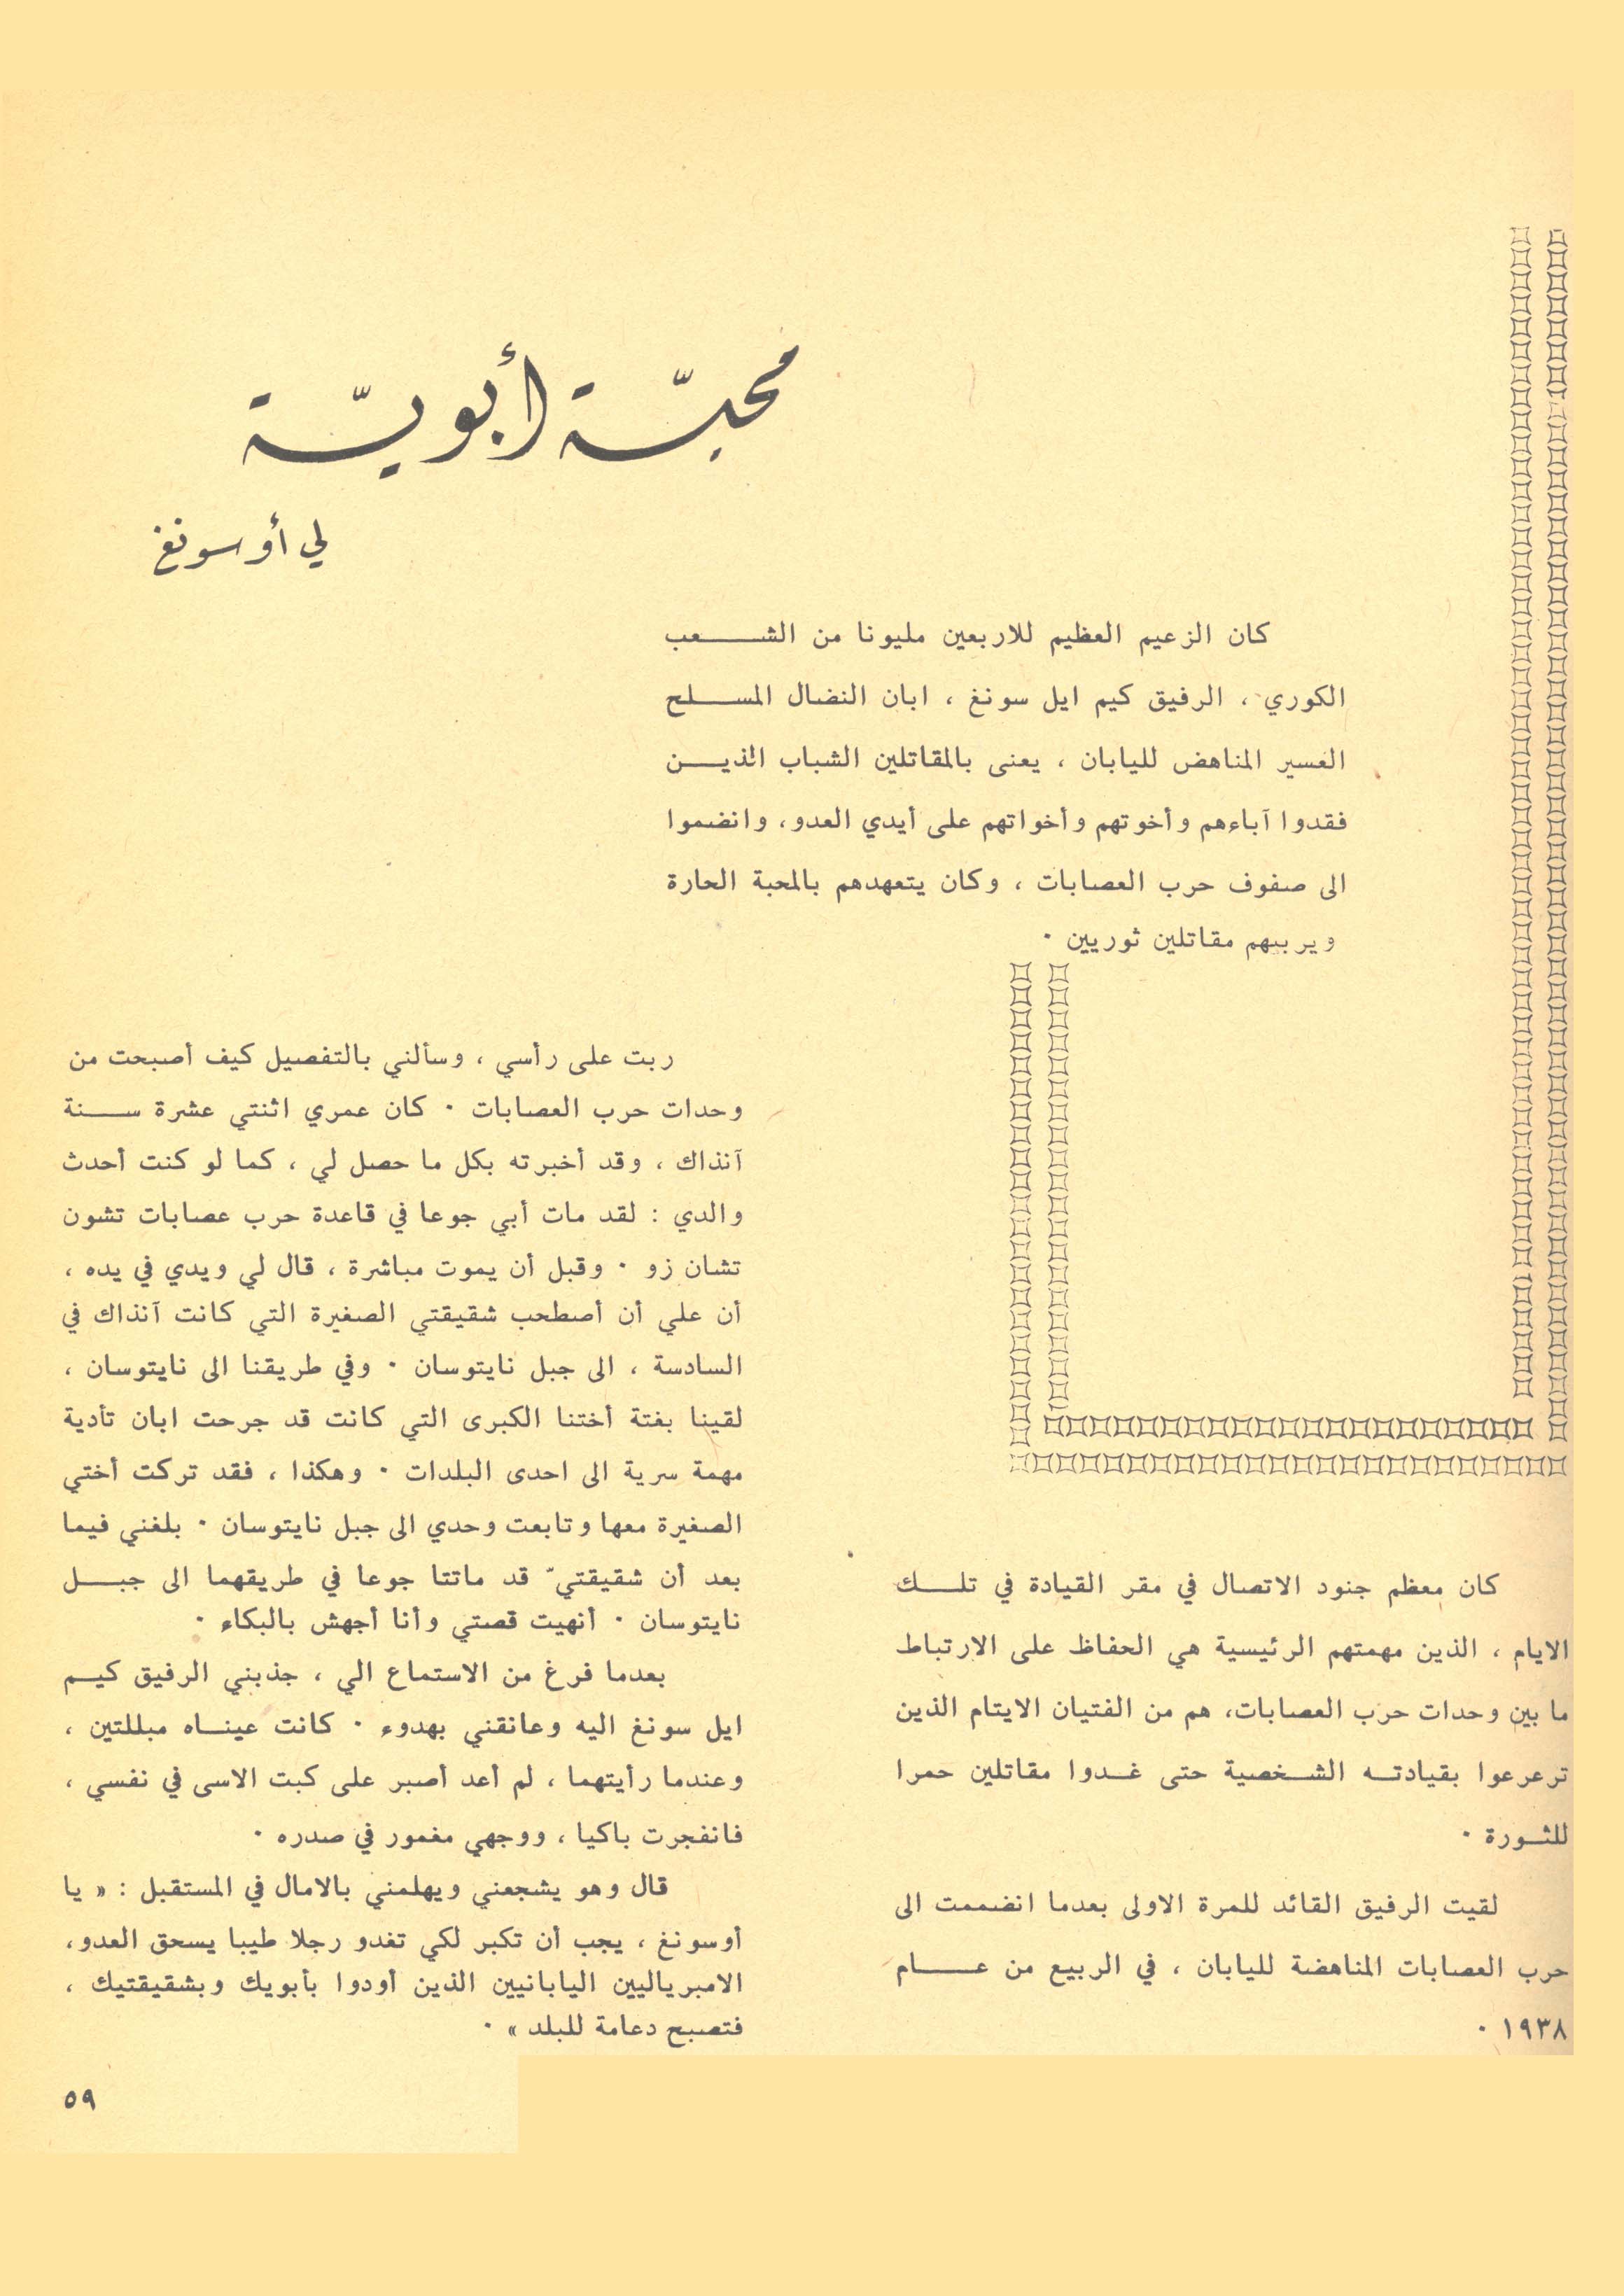 محبّة أبويّة
لي أوسونغ
كان الزعيم العظيم للاربعين مليونا من الشعب
الكوري ، الرفيق كيم ايل سونغ ، ابان النضال المسلح
العسير المناهض لليابان ، يعنى بالمقاتلين الشباب الذين
فقدوا آباءهم وأخوتهم وأخواتهم على أيدي العدو، وانضموا
الى صفوف حرب العصابات ، وكان يتعهدهم بالمحبة الحارة
ويربيهم مقاتلين ثوريين ٠
كان معظم جنود الاتصال في مقر القيادة في تلك
الايام ، الذين مهمتهم الرئيسية هي الحفاظ على الارتباط
ما بين وحدات حرب العصابات، هم من الفتيان الايتام الذين
ترعرعوا بقيادته الشخصية حتى غدوا مقاتلين حمرا
للثورة ٠
لقيت الرفيق القائد للمرة الاولى بعدما انضممت الى
حرب العصابات المناهضة لليابان ، في الربيع من عام
١٩٣٨ ٠
ربت على رأسي ، وسألني بالتفصيل كيف أصبحت من
وحدات حرب العصابات ٠ كان عمري اثنتي عشرة سنة
آنذاك ، وقد أخبرته بكل ما حصل لي ، كما لو كنت أحدث
والدي : لقد مات أبي جوعا في قاعدة حرب عصابات تشون
تشان زو ٠ وقبل أن يموت مباشرة ، قال لي ويدي في يده ،
أن علي أن أصطحب شقيقتي الصغيرة التي كانت آنذاك في
السادسة ، الى جبل نايتوسان ٠ وفي طريقنا الى نايتوسان ،
لقينا بغتة أختنا الكبرى التي كانت قد جرحت ابان تأدية
مهمة سرية الى احدى البلدات ٠ وهكذا ، فقد تركت أختي
الصغيرة معها وتابعت وحدي الى جبل نايتوسان ٠ بلغني فيما
بعد أن شقيقتيّ قد ماتتا جوعا في طريقهما الى جبل
نايتوسان ٠ أنهيت قصتي وأنا أجهش بالبكاء ٠
بعدما فرغ من الاستماع الي ، جذبني الرفيق كيم
ايل سونغ اليه وعانقني بهدوء ٠ كانت عيناه مبللتين ،
وعندما رأيتهما ، لم أعد أصبر على كبت الاسى في نفسي ،
فانفجرت باكيا ، ووجهي مغمور في صدره ٠
قال وهو يشجعني ويهلمني بالامال في المستقبل : « يا
أوسونغ ، يجب أن تكبر لكي تغدو رجلا طيبا يسحق العدو،
الامبرياليين اليابانيين الذين أودوا بأبويك وبشقيقتيك ،
فتصبح دعامة للبلد » ٠
٥٩